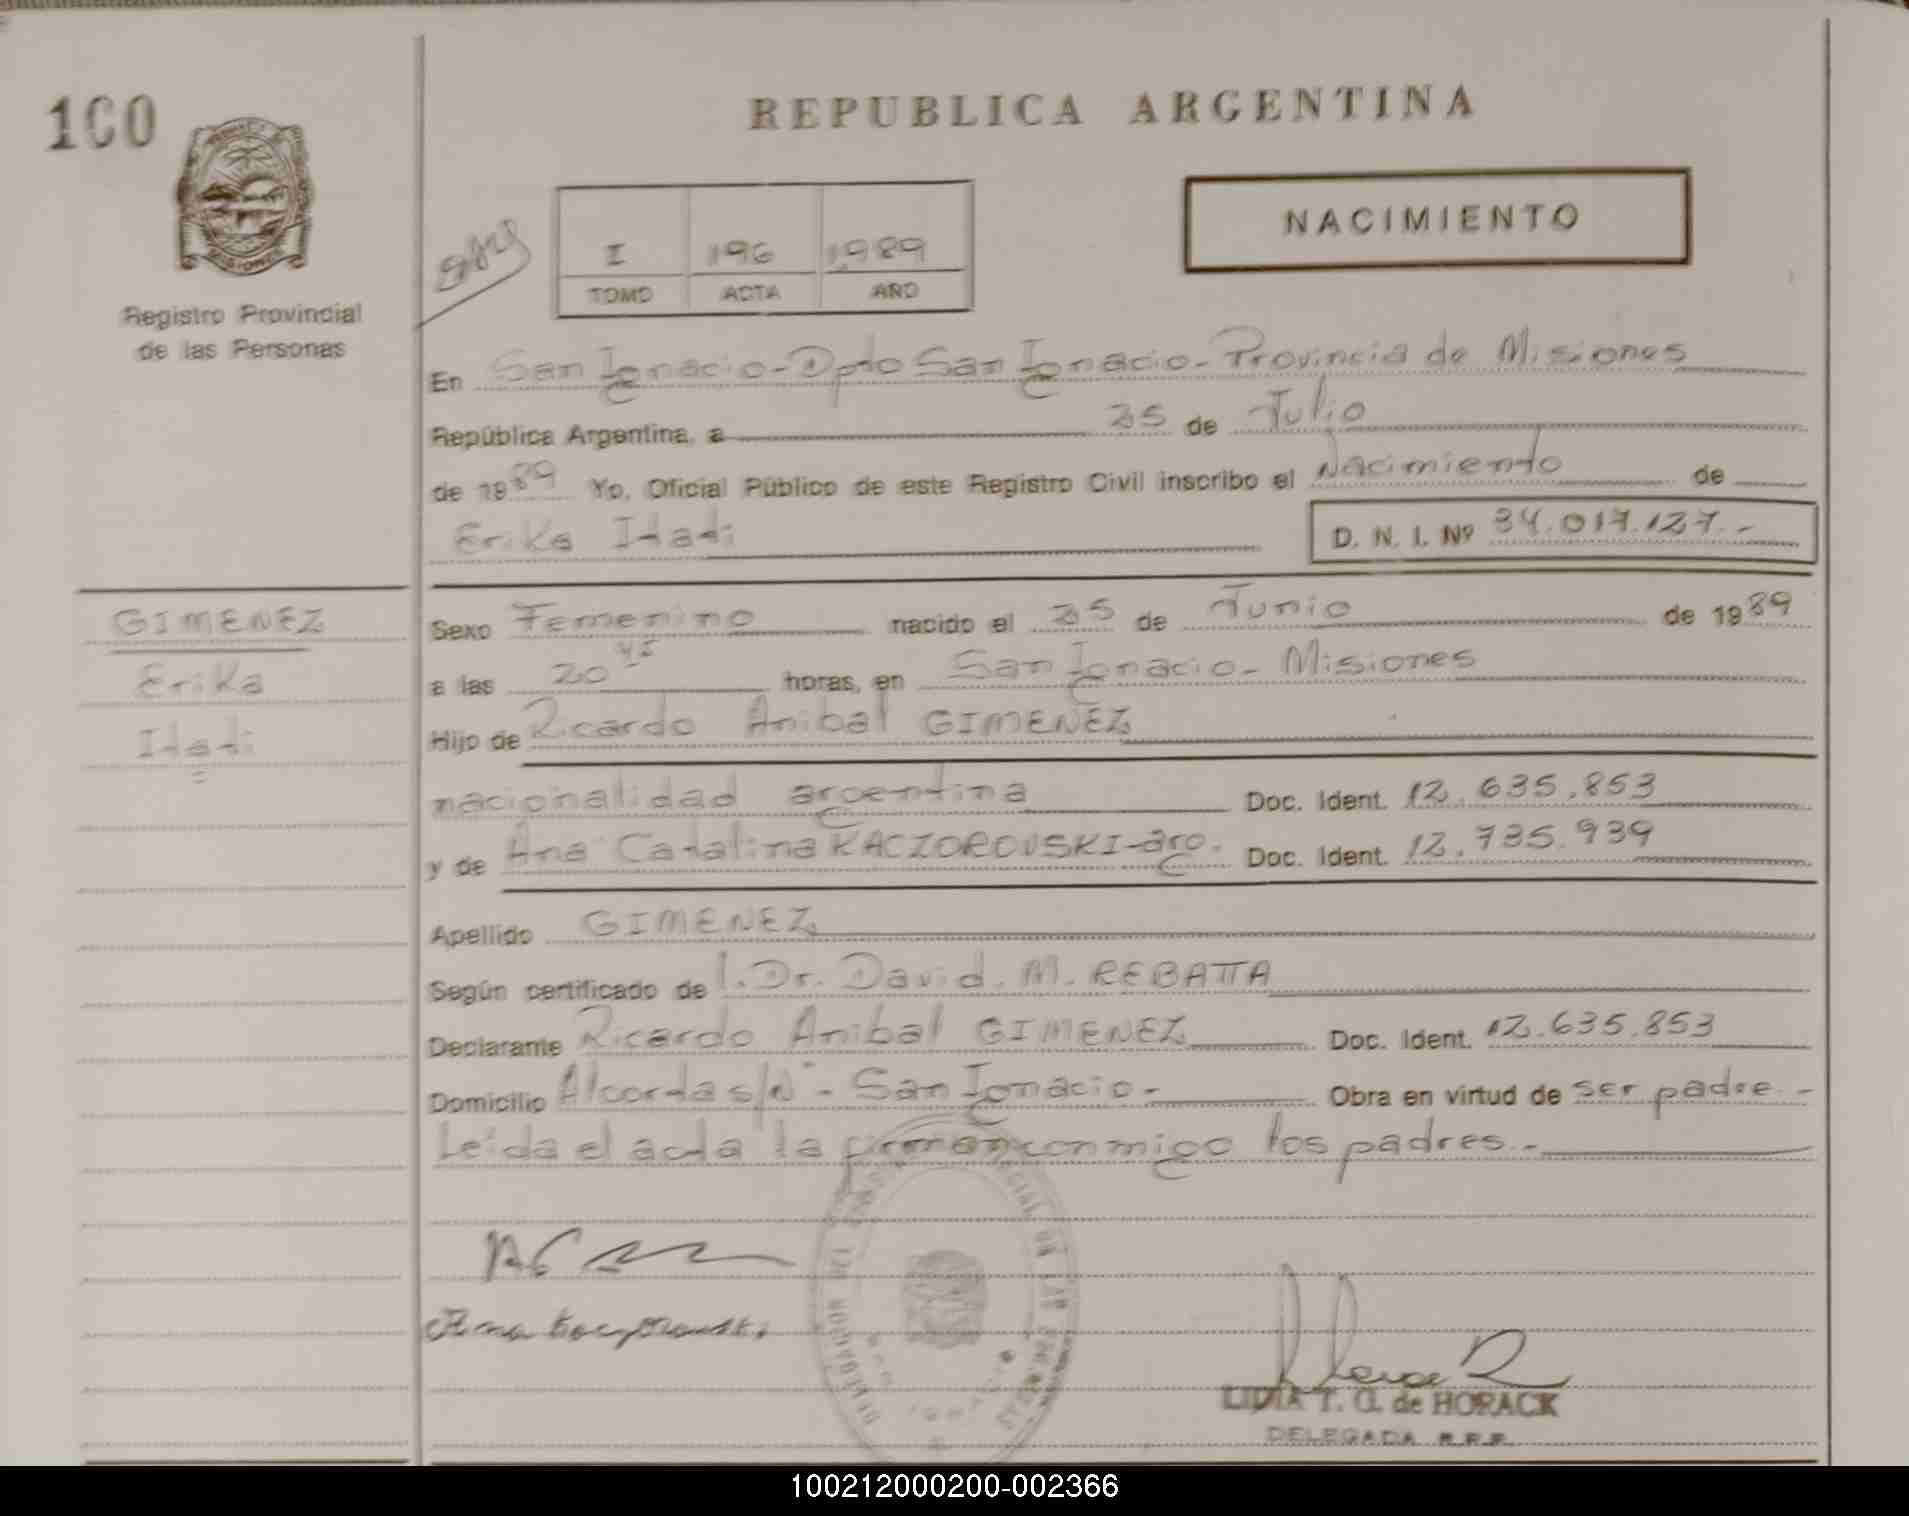 100
REPUBLICA ARGENTINA
NACIMIENTO
I 196 1989
TOMO ACTA AÑO
Registro Provincial
de las Personas
En San Ignacio - Dpto San Ignacio - Provincia de Misiones
República Argentina, a 25 de Julio
de 1989 Yo, Oficial Público de este Registro Civil inscribo el Nacimiento de
Erika Itati
D. N. I. Nº 34.017.127.-
GIMENEZ
Erika
Itati
Sexo Femenino nacido el 25 de Junio de 1989
a las 20 45 horas, en San Ignacio - Misiones
Hijo de Ricardo Anibal GIMENEZ
nacionalidad argentina Doc. Ident. 12.635.853
y de Ana Catalina KACZOROUSKI - arg. Doc. Ident. 12.735.939
Apellido GIMENEZ
Según certificado de l. Dr. David. M. REBATTA
Declarante Ricardo Anibal GIMENEZ Doc. Ident. 12.635.853
Domicilio Alcorta s/Nº - San Ignacio - Obra en virtud de ser padre.-
Leída el acta la firman conmigo los padres.-
LIDIA T. G. de HORACK
DELEGADA R.P.P.
100212000200-002366